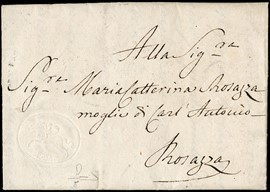 Alla Sig.ra
Sig.ra Maria Catterina Rosazza
moglie di Carl' Antonio
Rosazza